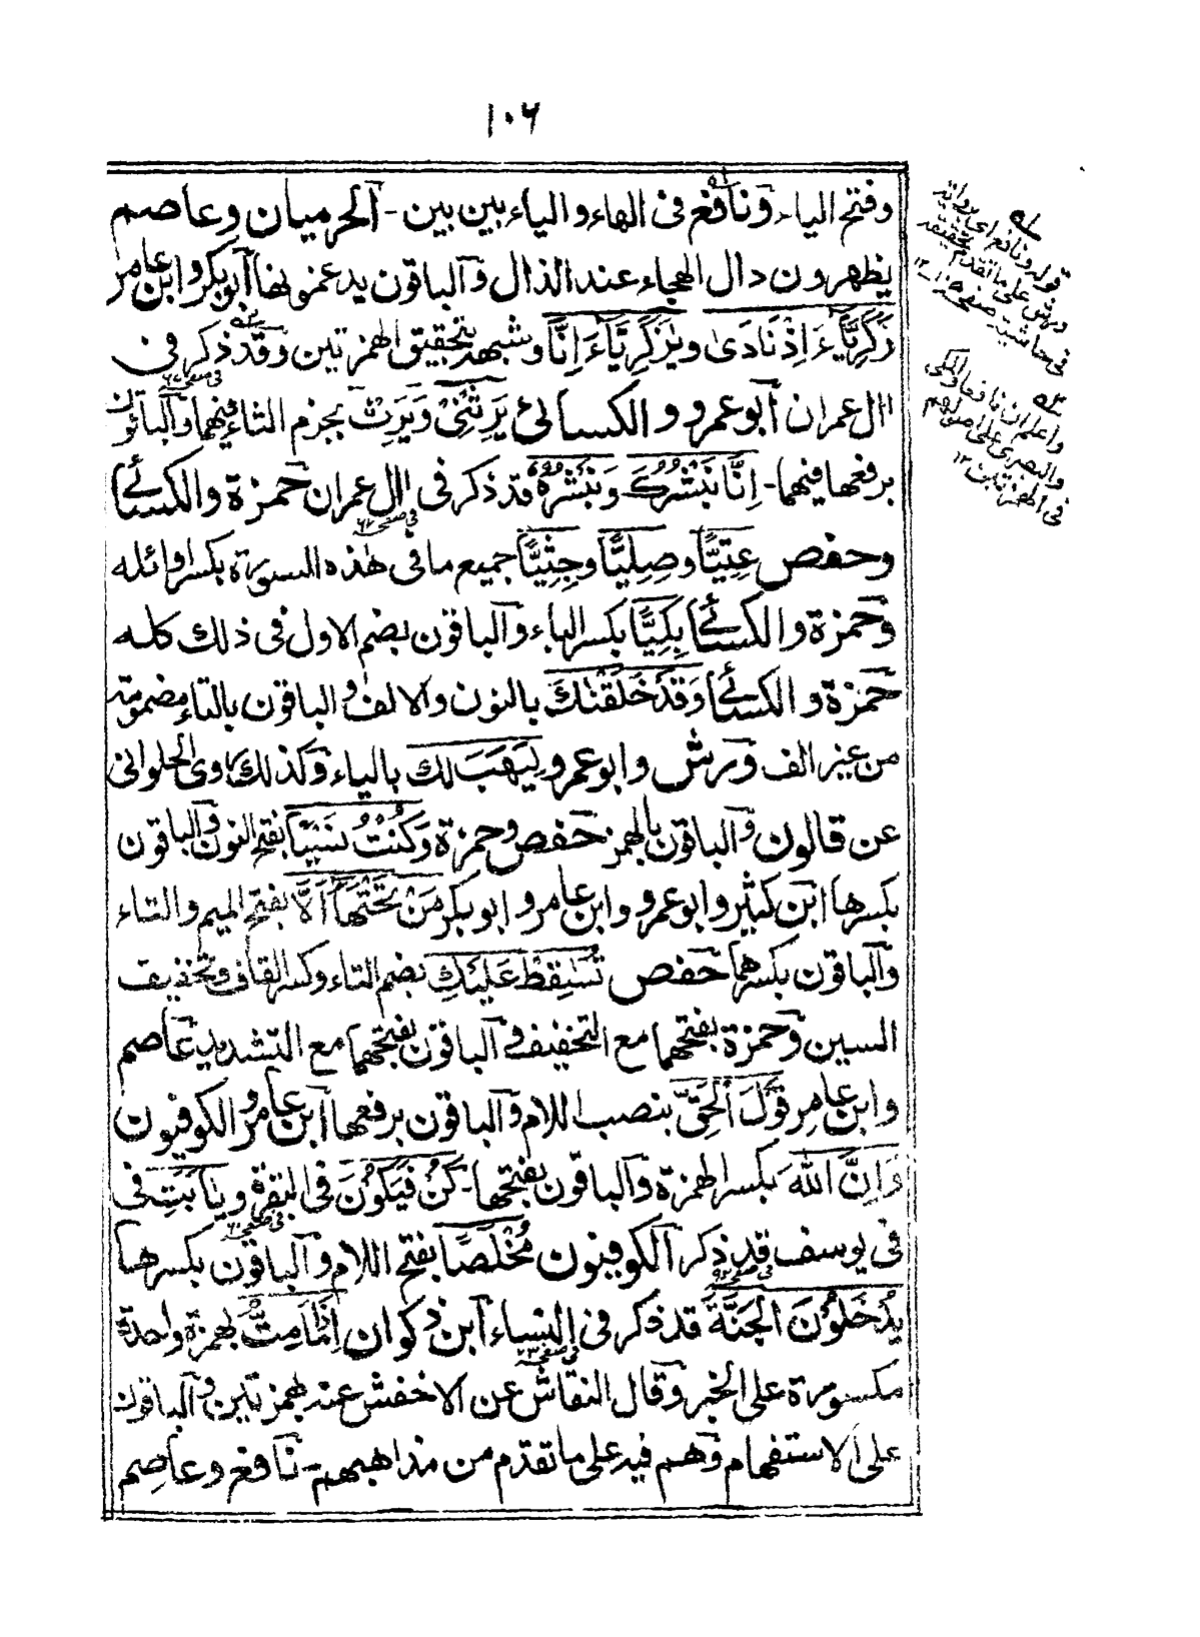 ١٠٦
وفتح الياء ونافع فى الهاء والياء بين بين - الحرميان وعاصم
يظهرون دال الهجاء عند الذال والباقون يدغمونها أبوبكر وابن عامر
زَكَرِيَّاءَ اِذْ نَادَى ويٰزَكَرِيَّاءُ اِنَّا وشبهه بتحقيق الهمزتين وقد ذكر فى
اٰل عمران أبوعمرو والكسائى يَرِثْنِىْ وَيَرِثْ بجزم الثاء فيهما والباقون
فى صفحه ٦٧
برفعها فيهما - اِنَّا نُبَشِّرُكَ وَنُبَشِّرُهُ قد ذكر فى اٰل عمران حمزة والكسائى
فى صفحه ٦٧
وحفص عِتِيًّا وصِلِيًّا وجِثِيًّا جميع ما فى هٰذه السورة بكسر اوائله
وحمزة والكسائى بِكِيًّا بكسر الباء والباقون بضم الاول فى ذلك كله
حمزة والكسائى وَقَدْ خَلَقْنٰكَ بالنون والالف والباقون بالتاء مضمومة
من غير الف ورش وابوعمرو لِيَهَبَ لك بالياء وكذلك روى الحلوانى
عن قالون والباقون بالهمز حفص وحمزة وَكُنْتُ نَسْيًا بفتح النون والباقون
بكسرها ابن كثير وابوعمرو وابن عامر وابوبكر مَنْ تَحْتَهَا اَلَّا بفتح الميم والتاء
والباقون بكسرهما حفص تُسٰقِطْ عَلَيْكِ بضم التاء وكسر القاف وتخفيف
السين وحمزة بفتحهما مع التخفيف والباقون بفتحهما مع التشديد عاصم
وابن عامر قَوْلَ الْحَقِّ بنصب اللام والباقون برفعها ابن عامر والكوفيون
وَاِنَّ اللّٰهَ بكسر الهمزة والباقون بفتحها - كُنْ فَيَكُوْنُ فى البقرة ويٰاَبَتِ فى
فى صفحه
فى يوسف قد ذكر الكوفيون مُخْلَصًا بفتح اللام والباقون بكسرها
فى صفحه
يُدْخَلُوْنَ الْجَنَّةَ قد ذكر فى النساء ابن ذكوان اِذَا مَا مِتُّ بهمزة واحدة
فى صفحه ٧٣
مكسورة على الخبر وقال النقاش عن الاخفش عنه بهمزتين والباقون
على الاستفهام وهم فيه على ما تقدم من مذاهبهم - نافع وعاصم
قوله ونافع اى برواية
ورش على ما تقدم تحقيقه
فى حاشيه صفحه ١٠ - ١٢
واعلم ان نافعا والمكى
والبصرى على اصولهم
فى الهمزتين ١٢